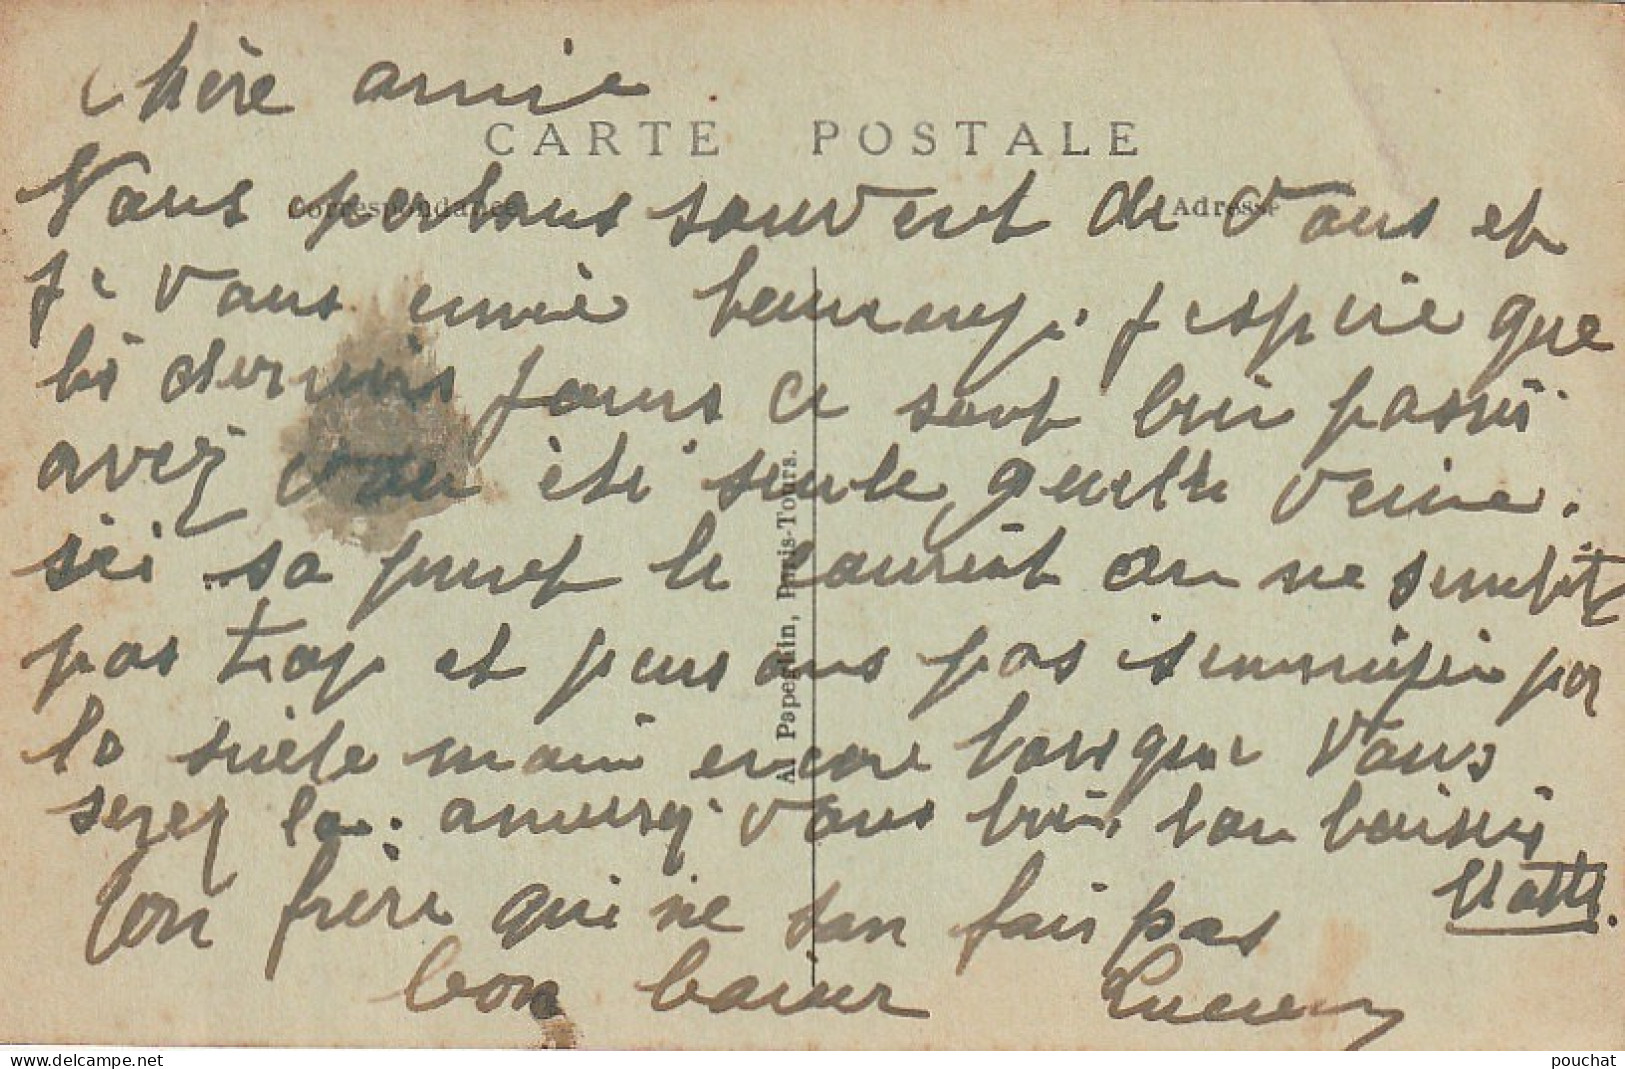 Chère amie
CARTE POSTALE
Correspondance
Adresse
Nous parlons souvent de vous et
je vous envie beaucoup. j espère que
les derniers jours ce sont bien passés
avez vous été seule, quelle veine.
ici sa pue le on ne
pas trop et puis ons pas par
la main encore lorsque vous
serez la. amusez vous bien, bon baisers
ton frère qui ne san fais pas
bon baiser Lucien
A. Papeghin, Paris-Tours.
pouchat